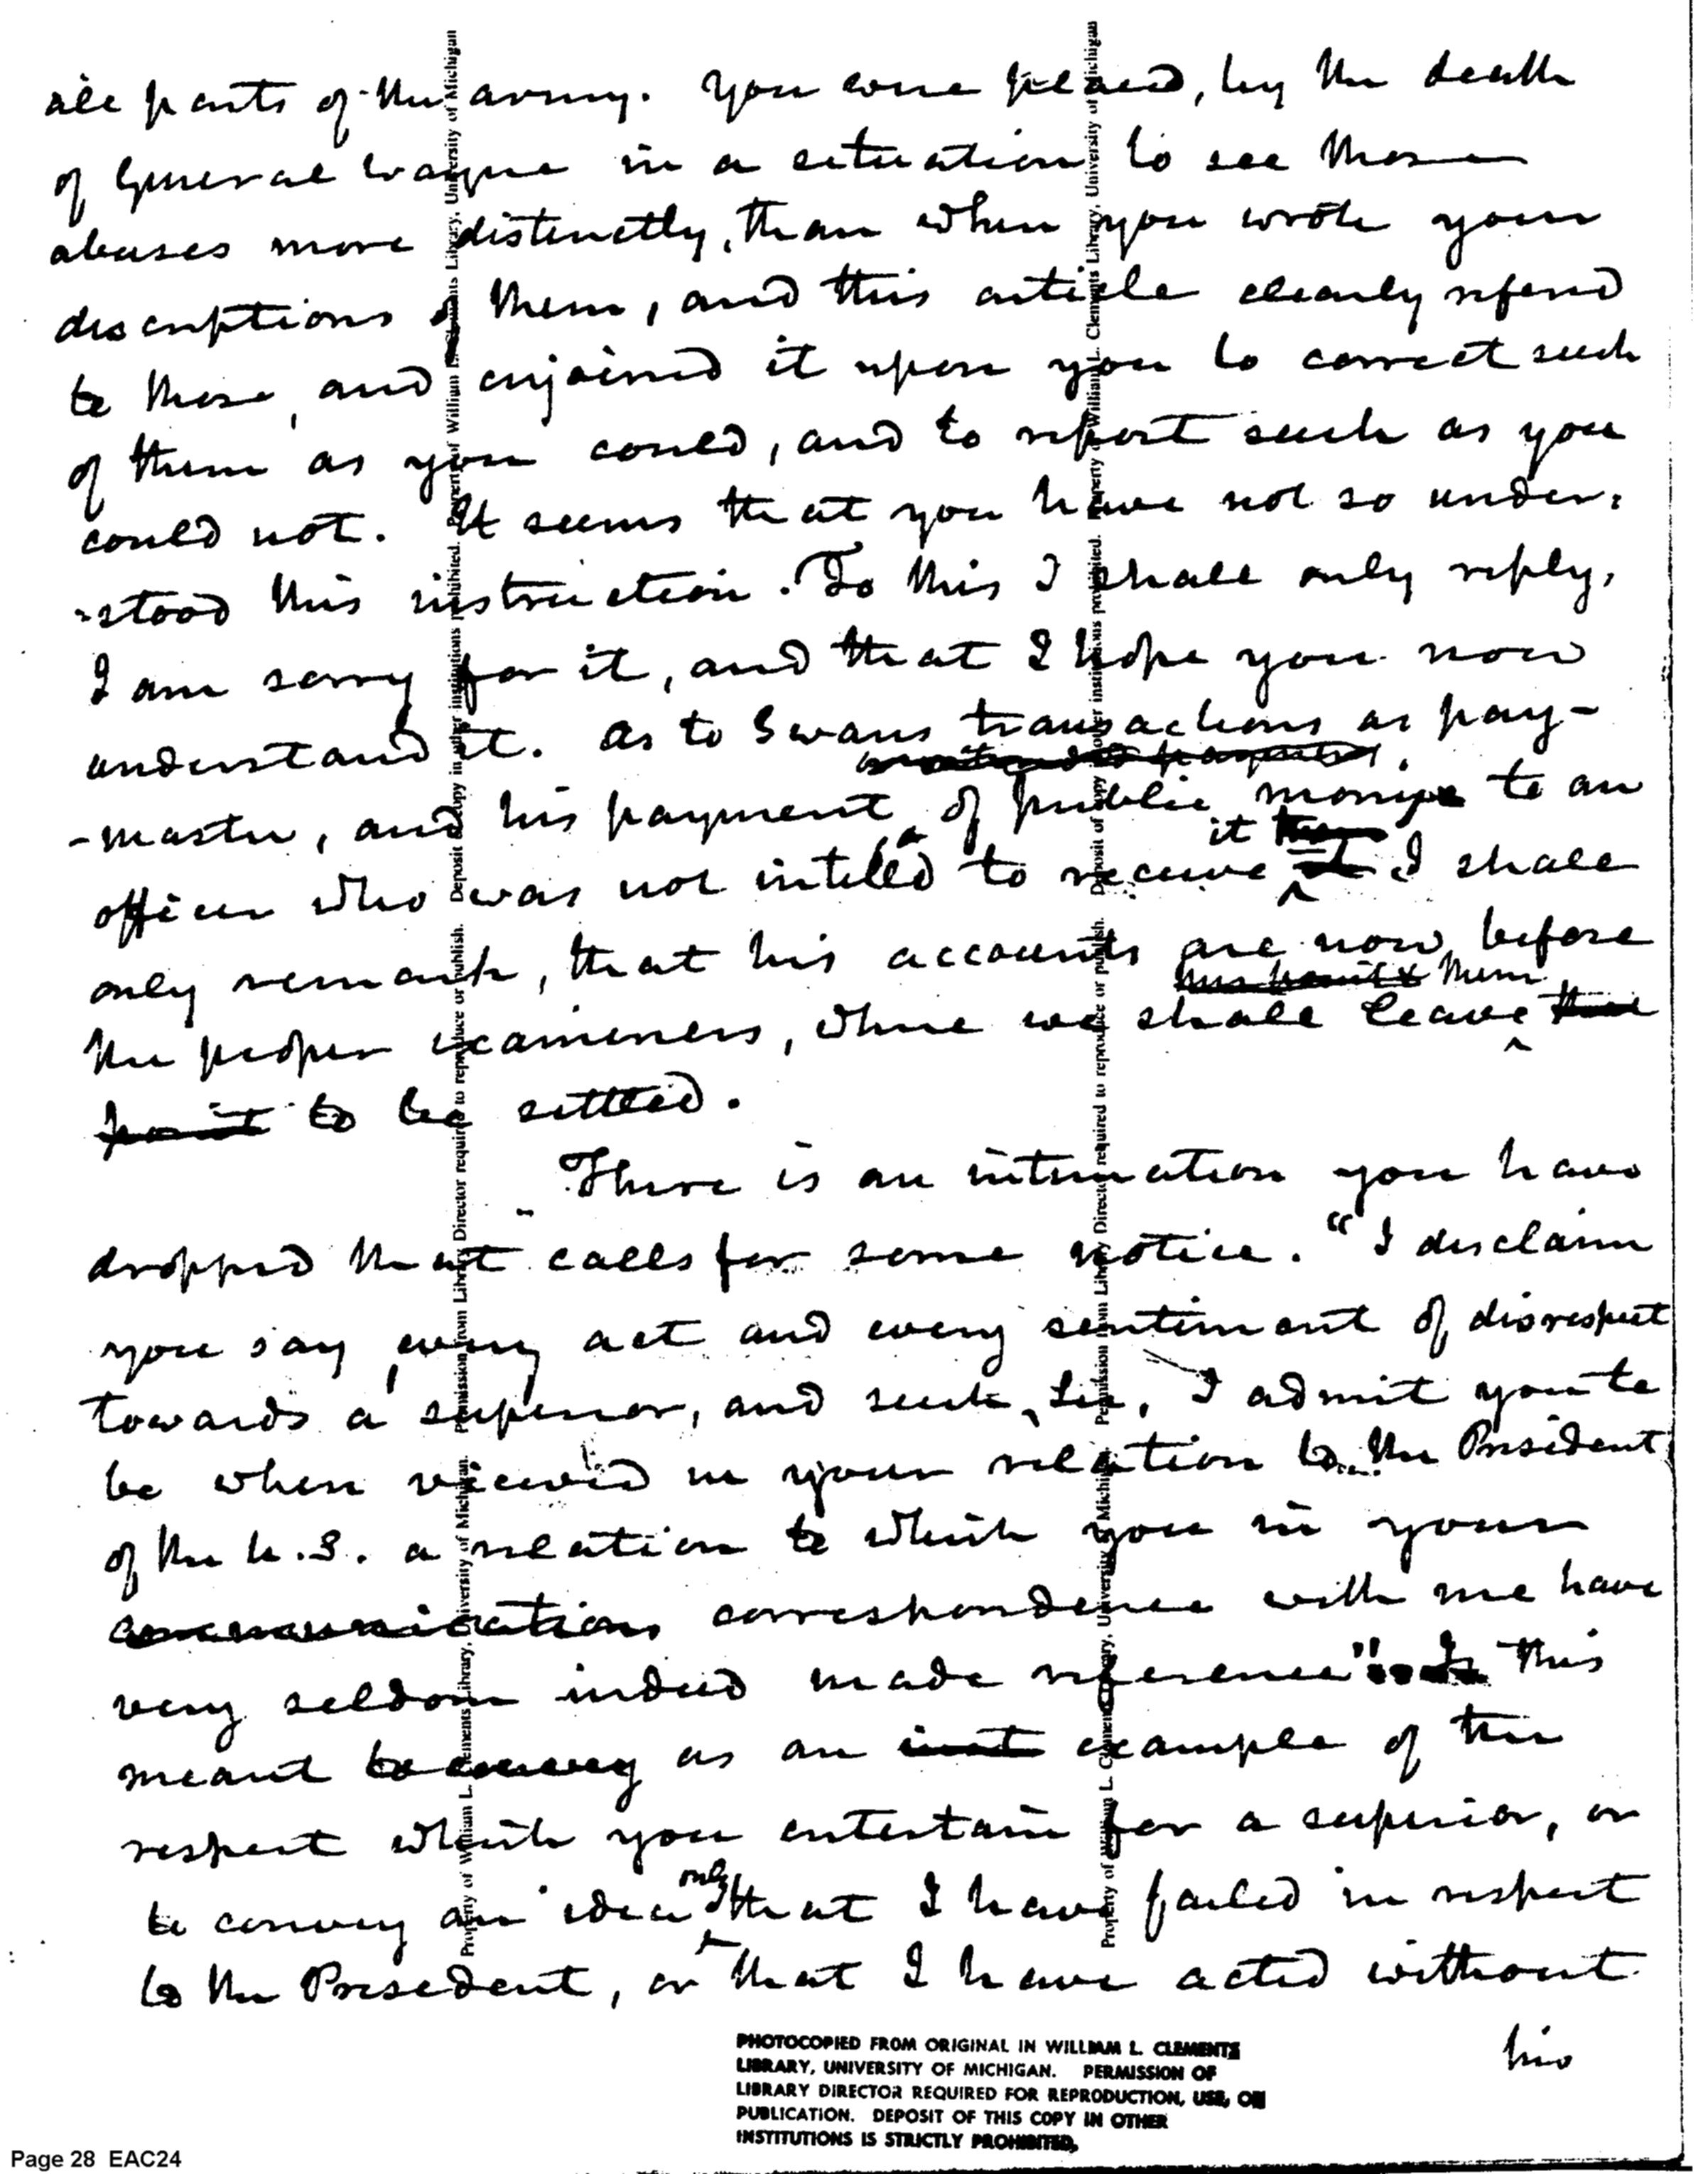 all parts of the army. You were placed, by the death
of General Wayne in a situation to see those
abuses more distinctly, than when you wrote your
descriptions of them, and this article clearly refered
to those, and enjoined it upon you to correct such
of them as you could, and to report such as you
could not. It seems that you have not so under:
-stood this instruction. To this I shall only reply,
I am sorry for it, and that I hope you now
understand it. As to Swans transactions as pay-
-master, and his payment of public money to an
it
officer who was not intitled to receive I shall
only remark, that his accounts are now before
this point them
the proper examiners, where we shall leave that
point to be settled.
There is an intimation you have
dropped that calls for some notice. "I disclaim
you say, every act and every sentiment of disrespect
towards a superior, and such, Sir, I admit you to
be when viewed in your relation to the President
of the U.S. a relation to which you in your
communications correspondence with me have
very seldom indeed made reference" Is this
meant to convey as an inst example of the
respect which you entertain for a superior, or
only
to convey an idea that I have failed in respect
to the President, or that I have acted without
his
PHOTOCOPIED FROM ORIGINAL IN WILLIAM L. CLEMENTS
LIBRARY, UNIVERSITY OF MICHIGAN. PERMISSION OF
LIBRARY DIRECTOR REQUIRED FOR REPRODUCTION, USE, OR
PUBLICATION. DEPOSIT OF THIS COPY IN OTHER
INSTITUTIONS IS STRICTLY PROHIBITED.
Page 28 EAC24
Property of William L. Clements Library, University of Michigan. Permission from Library Director required to reproduce or publish. Deposit of copy in other institutions prohibited. Property of William L. Clements Library, University of Michigan
Property of William L. Clements Library, University of Michigan. Permission from Library Director required to reproduce or publish. Deposit of copy in other institutions prohibited. Property of William L. Clements Library, University of Michigan